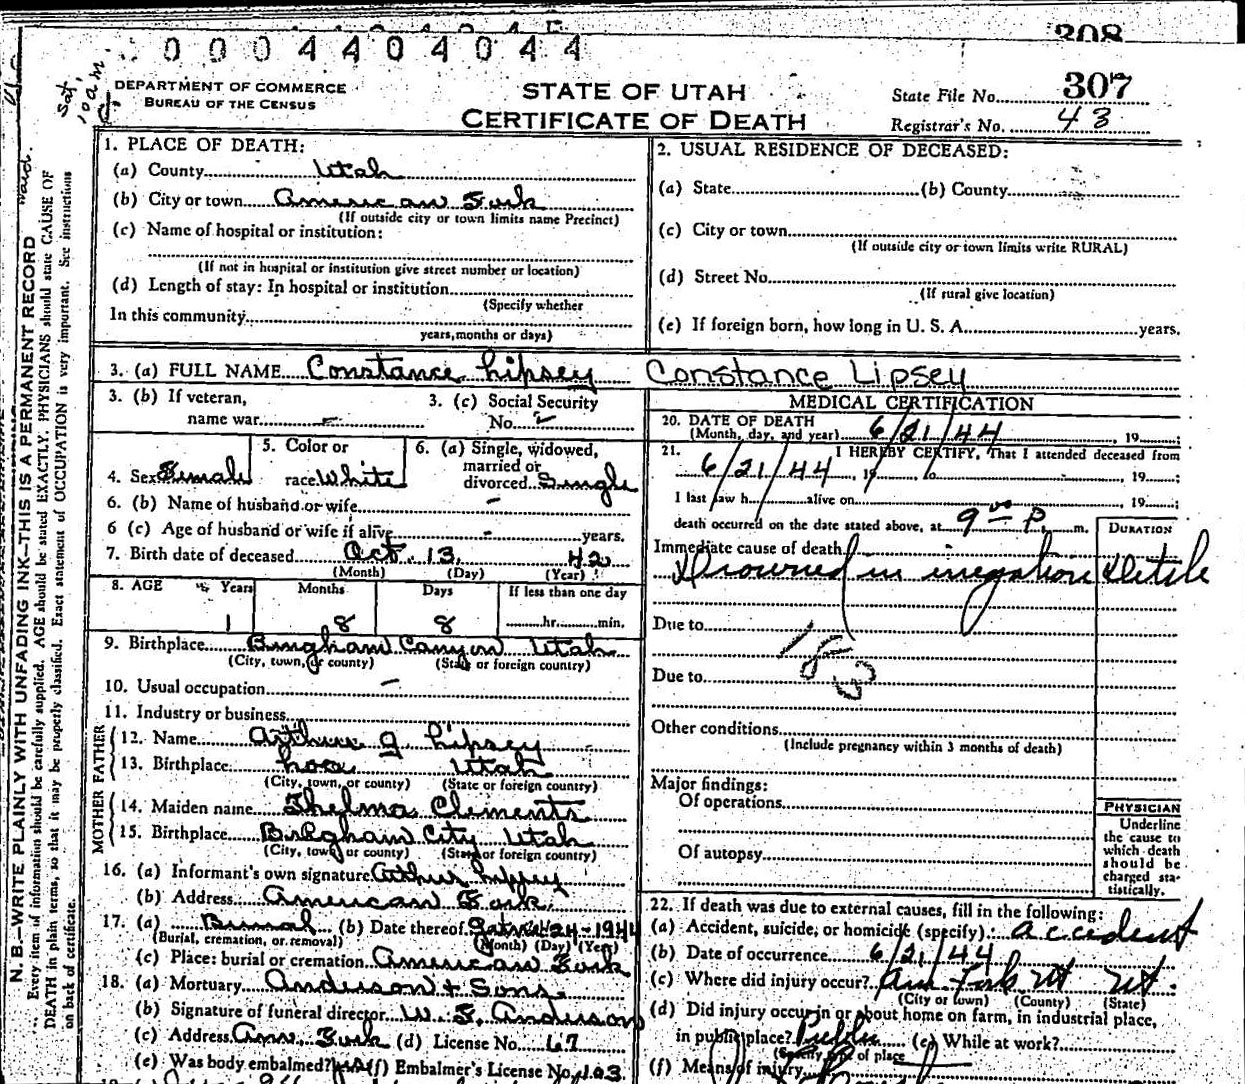 308
0 0 0 4 4 0 4 0 4 4
307
DEPARTMENT OF COMMERCE
BUREAU OF THE CENSUS
STATE OF UTAH
CERTIFICATE OF DEATH
State File No. 307
Registrar's No. 43
Sat 10 a.m.
ward.
N. B.—WRITE PLAINLY WITH UNFADING INK—THIS IS A PERMANENT RECORD
Every item of information should be carefully supplied. AGE should be stated EXACTLY. PHYSICIANS should state CAUSE OF
DEATH in plain terms, so that it may be properly classified. Exact statement of OCCUPATION is very important. See instructions
on back of certificate.
1. PLACE OF DEATH:
(a) County Utah
(b) City or town American Fork
(If outside city or town limits name Precinct)
(c) Name of hospital or institution:
(If not in hospital or institution give street number or location)
(d) Length of stay: In hospital or institution
(Specify whether
In this community
years, months or days)
2. USUAL RESIDENCE OF DECEASED:
(a) State (b) County
(c) City or town
(If outside city or town limits write RURAL)
(d) Street No.
(If rural give location)
(e) If foreign born, how long in U. S. A. years.
3. (a) FULL NAME Constance Lipsey Constance Lipsey
3. (b) If veteran,
name war –
3. (c) Social Security
No. –
4. Sex Female
5. Color or
race White
6. (a) Single, widowed,
married or
divorced Single
6. (b) Name of husband or wife –
6 (c) Age of husband or wife if alive - years.
7. Birth date of deceased Oct. 13, 42
(Month) (Day) (Year)
8. AGE Years Months Days If less than one day
1 8 8 hr. min.
9. Birthplace Bingham Canyon Utah
(City, town, or county) (State or foreign country)
10. Usual occupation –
11. Industry or business
FATHER
12. Name Arthur G Lipsey
13. Birthplace Loa Utah
(City, town, or county) (State or foreign country)
MOTHER
14. Maiden name Thelma Clements
15. Birthplace Brigham City Utah
(City, town or county) (State or foreign country)
16. (a) Informant's own signature Arthur Lipsey
(b) Address American Fork
17. (a) Burial (b) Date thereof 24-1944
(Burial, cremation, or removal) (Month) (Day) (Year)
(c) Place: burial or cremation American Fork
18. (a) Mortuary Anderson + Sons
(b) Signature of funeral director W. E. Anderson
(c) Address Am. Fork (d) License No. 67
(e) Was body embalmed? yes (f) Embalmer's License No. 103
MEDICAL CERTIFICATION
20. DATE OF DEATH
(Month, day, and year) 6/21/44, 19 ;
21. I HEREBY CERTIFY, That I attended deceased from
6/21/44, 19 , to , 19 ;
I last saw h alive on , 19 ;
death occurred on the date stated above, at 9:00 P. m.
DURATION
Immediate cause of death
Drowned in irregation Ditch
Due to
183
Due to
Other conditions
(Include pregnancy within 3 months of death)
Major findings:
Of operations
Of autopsy
PHYSICIAN
Underline
the cause to
which death
should be
charged sta-
tistically.
22. If death was due to external causes, fill in the following:
(a) Accident, suicide, or homicide (specify) accedent
(b) Date of occurrence 6/21/44
(c) Where did injury occur? Am Fork Ut Ut.
(City or town) (County) (State)
(d) Did injury occur in or about home on farm, in industrial place,
in public place? Public (e) While at work?
(Specify type of place
(f) Means of injury